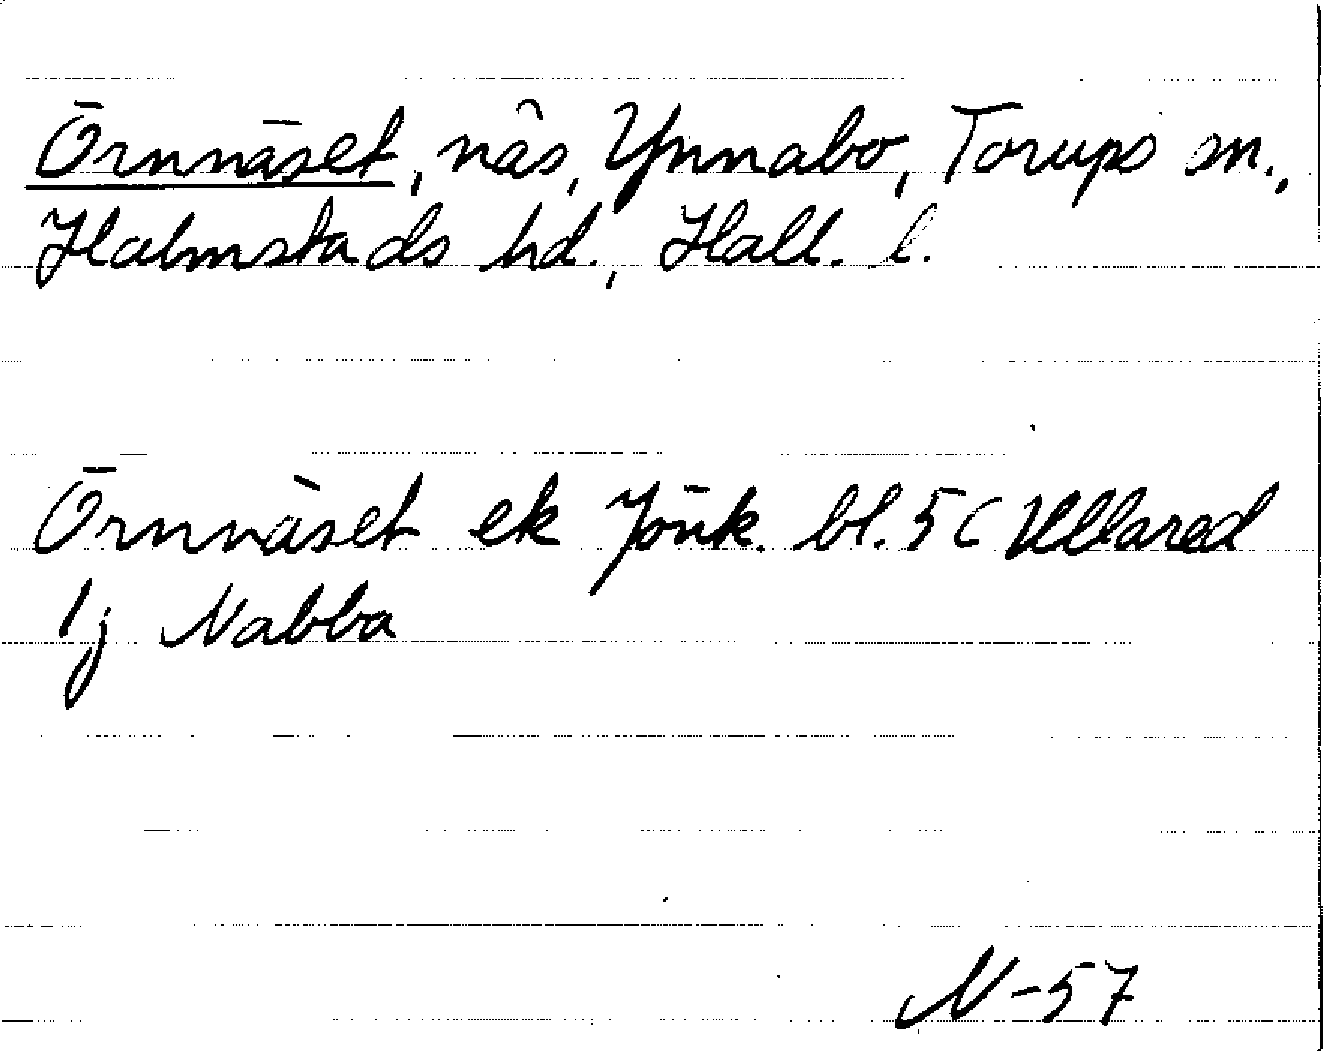 Örnnäset, näs, Ynnabo, Torups sn.,
Halmstads hd., Hall. l.
Örnnäset ek Jönk. bl. 5C Ullared
1j Nabba
N-57